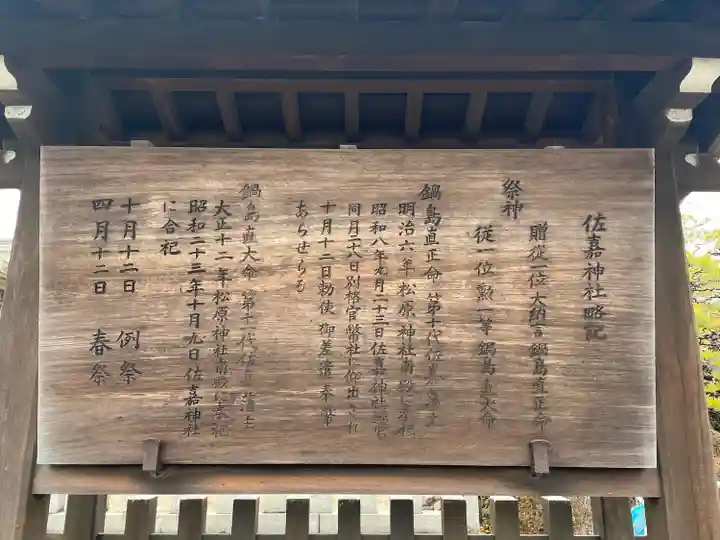 佐嘉神社略記
贈従一位大納言鍋島直正命
祭神
従一位勲一等鍋島直大命
鍋島直正命(第十代佐嘉藩主
明治六年松原神社南殿に奉祀
昭和八年九月二十三日佐嘉神社遷宮
同月二八日別格官幣社に仰出され
十月十二日勅使御差遣奉幣
あらせらる
鍋島直大命(第十一代佐嘉藩主
大正十二年松原神社南殿に奉祀
昭和二十三年十月九日佐嘉神社
に合祀
十月十二日 例祭
四月十二日 春祭